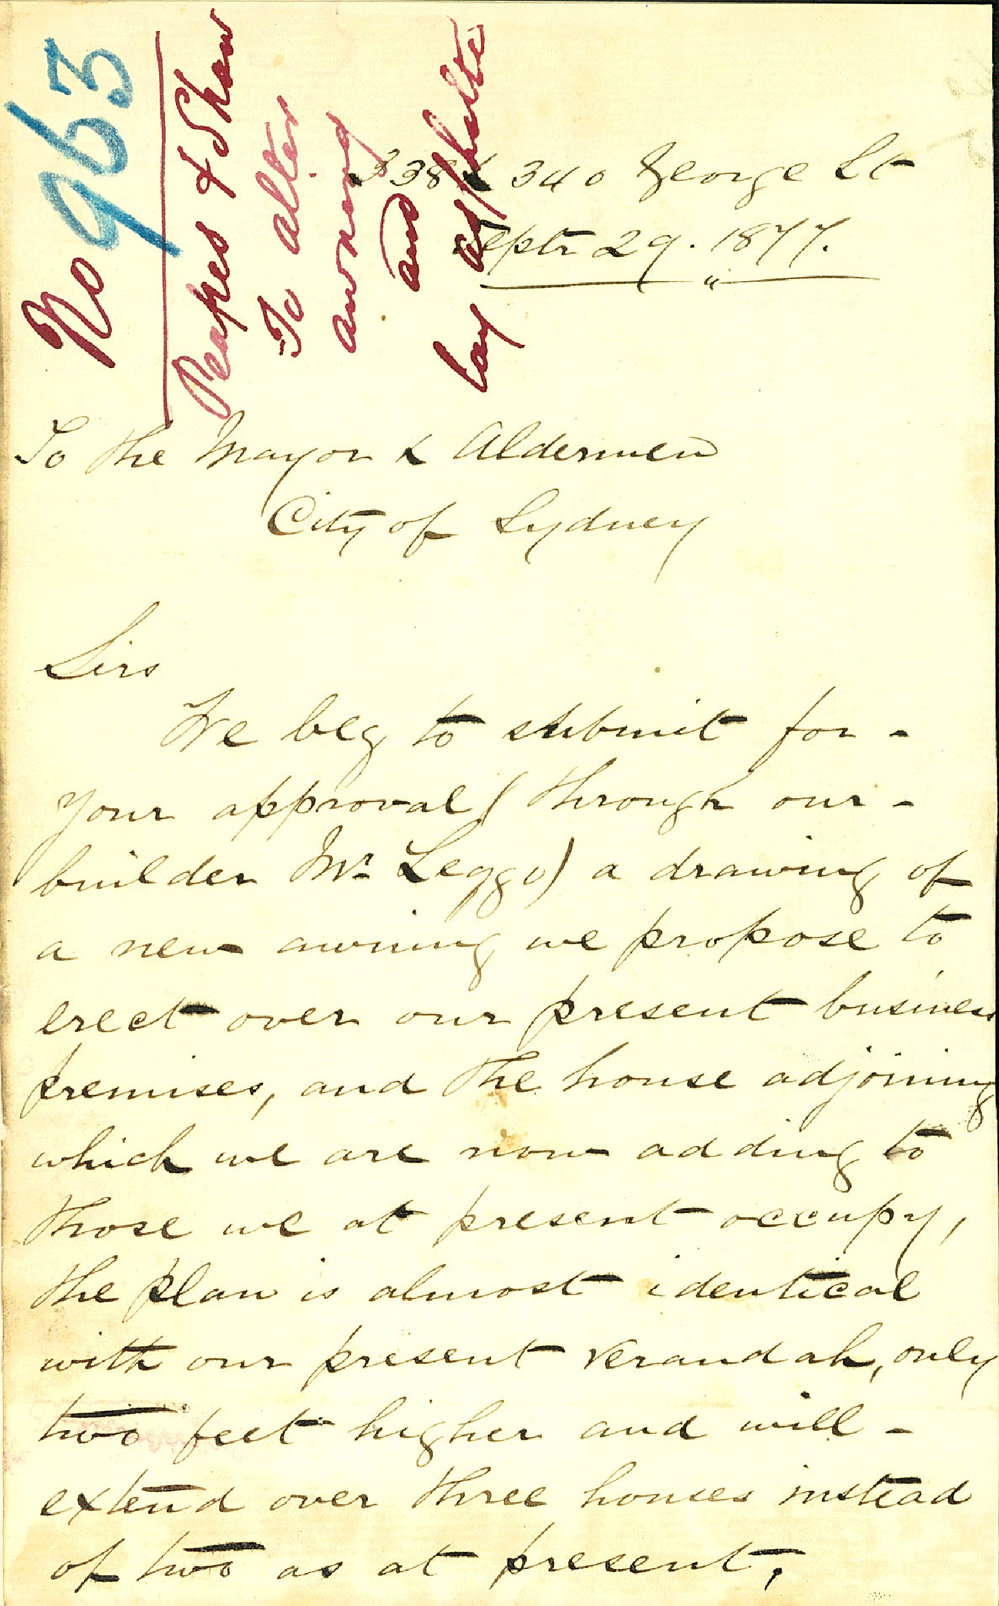 No 963
Peapes & Shaw
To alter
awning
and
lay asphalte
338 & 340 George St
Septr 29. 1877.
To the Mayor & Aldermen
City of Sydney
Sirs
We beg to submit for -
your approval (through our -
builder Mr. Leggo) a drawing of
a new awning we propose to
erect over our present business
premises, and the house adjoining
which we are now adding to
those we at present occupy,
the plan is almost identical
with our present verandah, only
two feet higher and will -
extend over three houses instead
of two as at present,